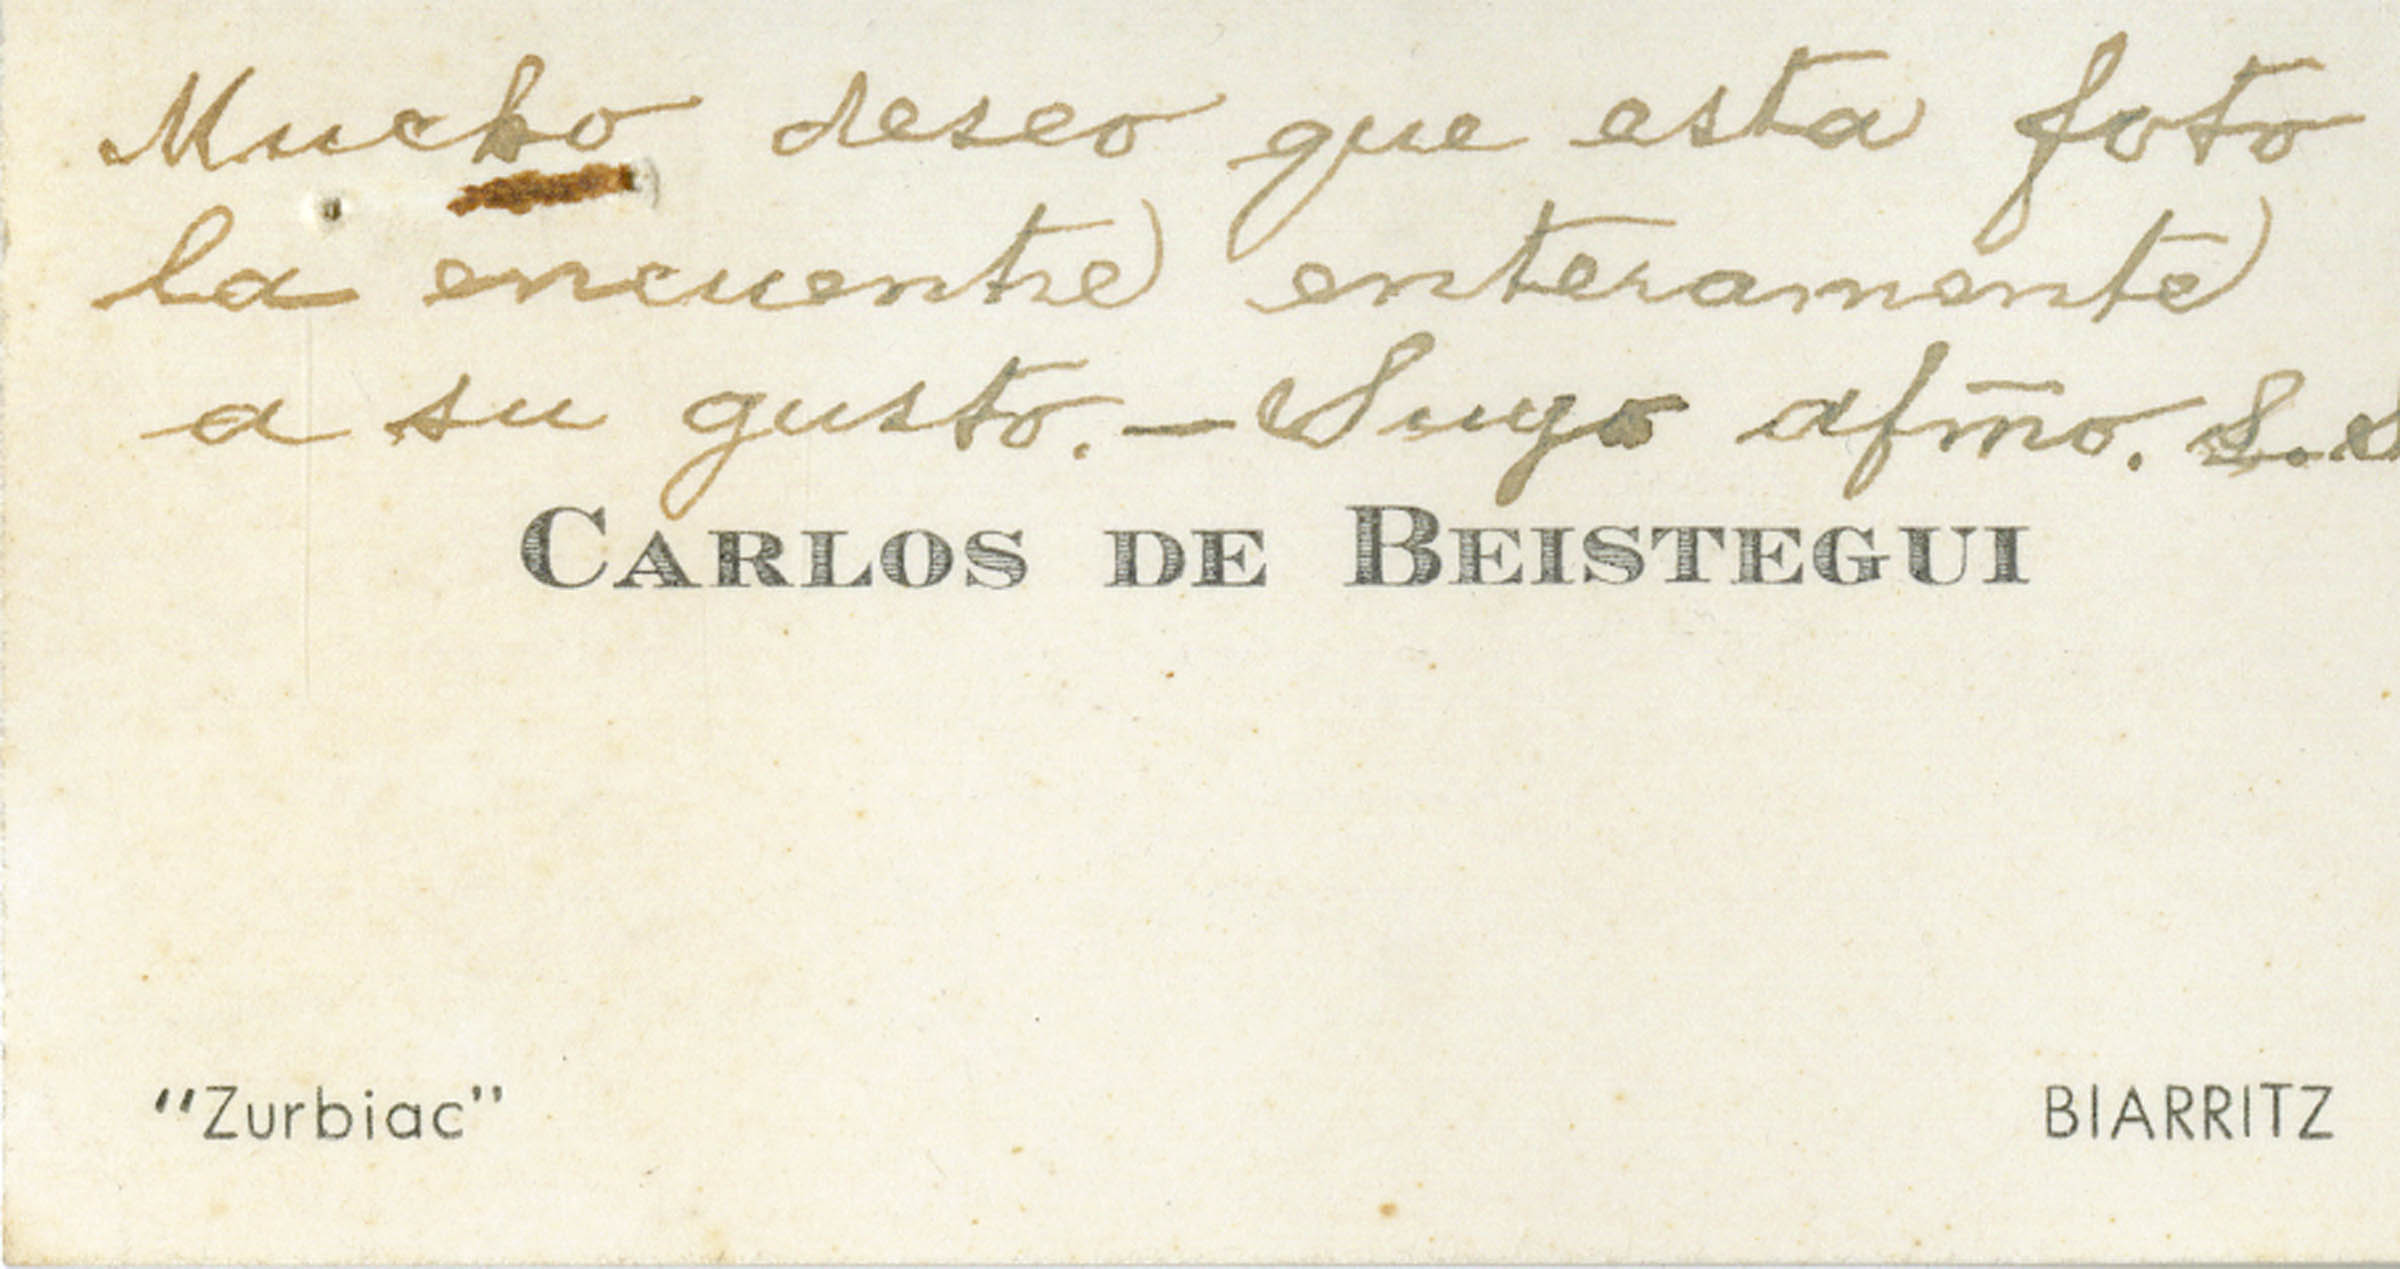 Mucho deseo que esta foto
la encuentre enteramente
a su gusto. — Suyo afmo. S.S
CARLOS DE BEISTEGUI
"Zurbiac"
BIARRITZ